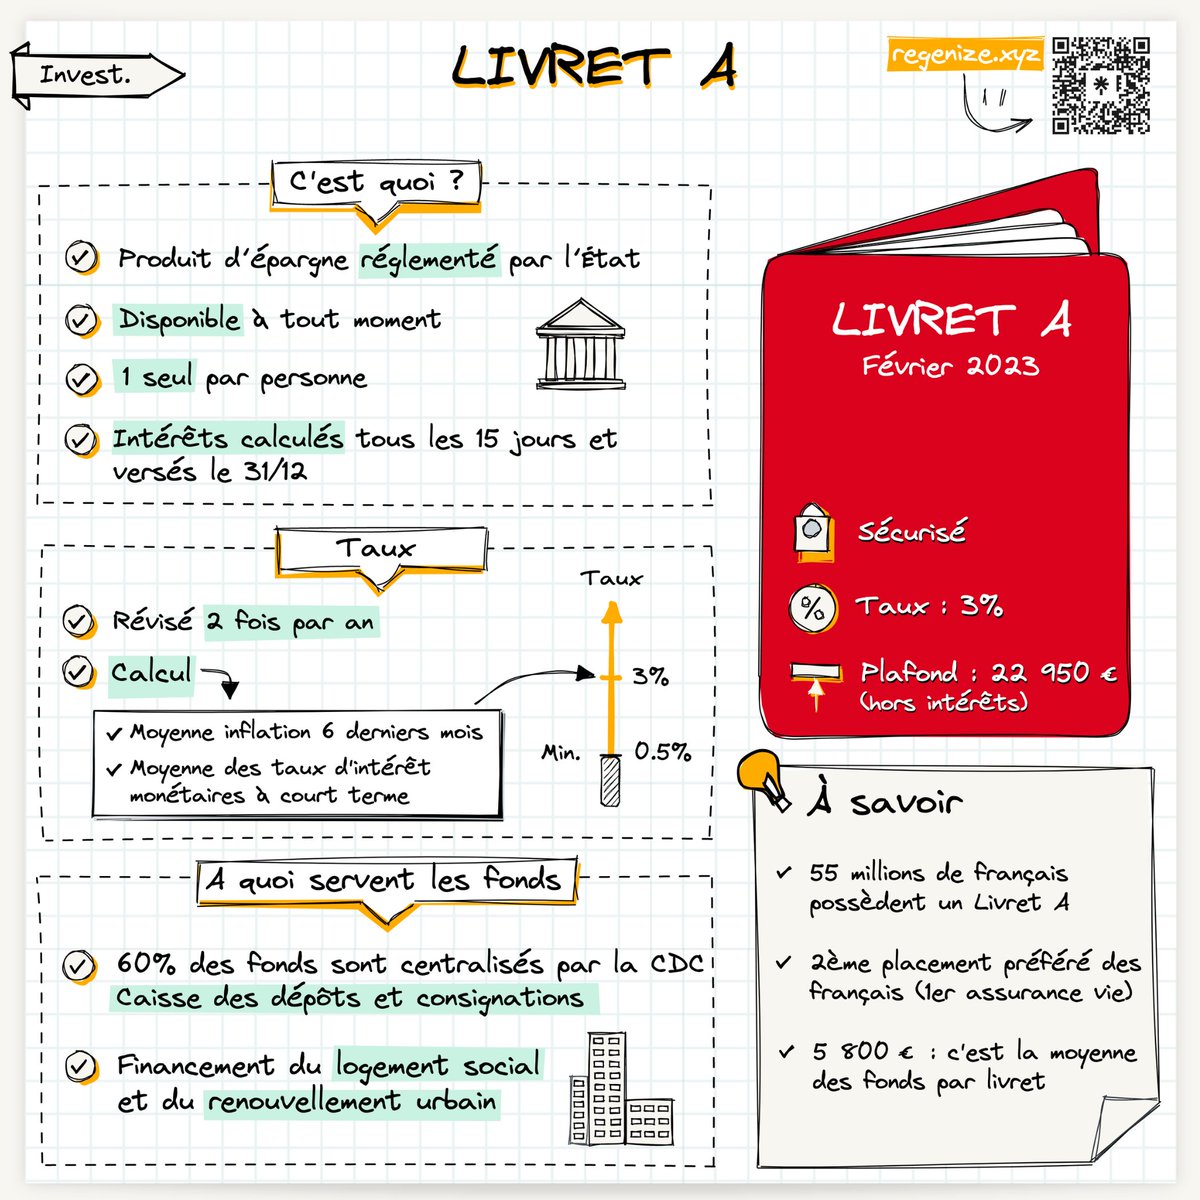 Invest.
LIVRET A
regenize.xyz
C'est quoi ?
Produit d'épargne réglementé par l'État
Disponible à tout moment
1 seul par personne
Intérêts calculés tous les 15 jours et
versés le 31/12
Taux
Révisé 2 fois par an
Calcul
Moyenne inflation 6 derniers mois
Moyenne des taux d'intérêt
monétaires à court terme
Taux
3%
Min. 0.5%
A quoi servent les fonds
60% des fonds sont centralisés par la CDC
Caisse des dépôts et consignations
Financement du logement social
et du renouvellement urbain
LIVRET A
Février 2023
Sécurisé
% Taux : 3%
Plafond : 22 950 €
(hors intérêts)
À savoir
55 millions de français
possèdent un Livret A
2ème placement préféré des
français (1er assurance vie)
5 800 € : c'est la moyenne
des fonds par livret